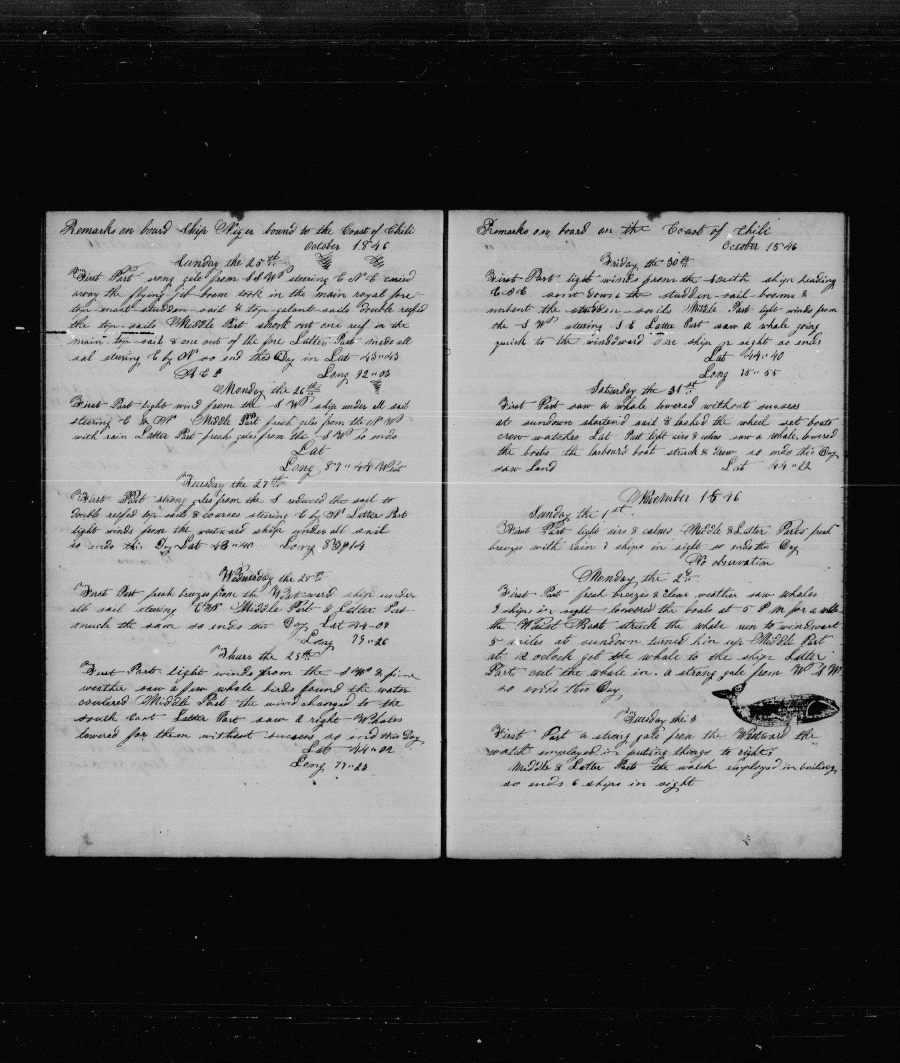 Remarks on board Ship Niger bound to the Coast of Chili
October 1846
Sunday the 25th
First Part gale from S S W steering E N E carried
away the flying jib boom took in the main royal fore
top mast studden sail & top galant sails double reefed
the top sails Middle Part shook out one reef in the
main top sail & one out of the fore Latter Part made all
sail steering E by N so end this Day in Lat 43"43
Long 92"03
Monday the 26th
First Part light wind from the S W ship under all sail
steering E by N Middle Part fresh gales from the N W
with rain Latter Part fresh gales from the S W so ends
Lat
Long 87"48 West
Tuesday the 27th
First Part strong gales from the S reduced the sail to
double reefed top sails & courses steering E by N Latter Part
light winds from the westward ship under all sail
so ends this Day Lat 43"40 Long
Wednesday the 28th
First Part fresh breezes from the Westward ship under
all sail steering Middle Part & Latter Part
much the same so ends this Day Lat 44"04
Long 79"26
Thurs the 29th
First Part light winds from the S W & fine
weather saw a few whale birds found the water
coulered Middle Part the wind changed to the
South East Latter Part saw a right Whales
lowered for them without success so end this Day
Lat 44"02
Long 77"23
Remarks on board on the Coast of Chili
October 1846
Friday the 30th
First Part light winds from the South ship heading
E S E sent down the studden sail booms &
unbent the studden sails Middle Part light winds from
the S W steering S E Latter Part saw a whale going
quick to the windward one ship in sight so ends
Lat 44"40
Long 75"55
Saturday the 31st
First Part saw a whale lowered without success
at sundown shortend sail & lashed the wheel set boats
crew watches Last Part light airs & calms saw a whale lowered
the boats the larbourd boat struck & drew so ends this Day
saw Land Lat 44"22
November 1846
Sunday the 1st
First Part light airs & calms Middle & Latter Parts fresh
breezes with rain 7 ships in sight so ends this Day
No observation
Monday the 2d
First Part fresh breezes & clear weather saw whales
9 ships in sight lowered the boats at 5 P M for a whale
the Waist Boat struck the whale run to windward
5 miles at sundown turned him up Middle Part
at 12 oclock got the whale to the ship Latter
Part cut the whale in. a strong gale from W S W
so ends this Day
Tuesday the 3
First Part a strong gale from the Westward the
watch employed in puting things to rights
Middle & Latter Part the watch employed in boiling
so ends 6 ships in sight